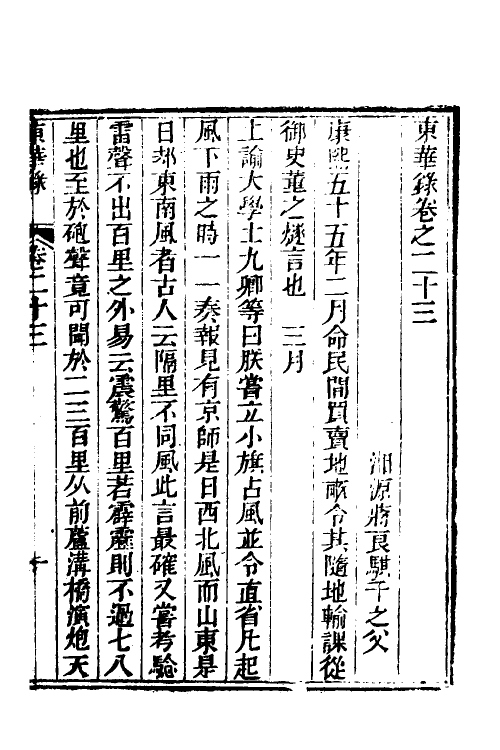 東華錄卷之二十三
湘源蔣良騏千之父
康熙五十五年二月命民間買賣地畝令其隨地輸課從
御史董之燧言也　三月
上諭大學士九卿等曰朕嘗立小旗占風並令直省凡起
風下雨之時一一奏報見有京師是日西北風而山東是
日却東南風者古人云隔里不同風此言最確又嘗考驗
雷聲不出百里之外易云震驚百里若霹靂則不過七八
里也至於砲聲竟可聞於二三百里从前蘆溝橋演炮天
東華錄　卷二十三　一